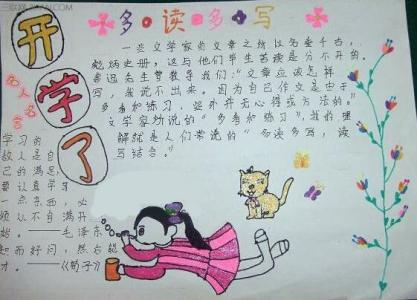 开学了
多·读·多·写
一些文学家的文章之所以名垂千古，
彪炳史册，这与他们毕生苦读是分不开的。
鲁迅先生曾教导我们："文章应该怎样
写，我说不出来。因为自己作文是由于
多看和练习，此外并无心得或方法的。"
文学家所说的"多看和练习"，我的理
解就是人们常说的"多读多写，读
写结合。"
名人名言
学习的
敌人是自
己的满足，
要认真学习
一点东西，必
须从不自满开
始。——毛泽东
知而好问，然后能
才。——《荀子》